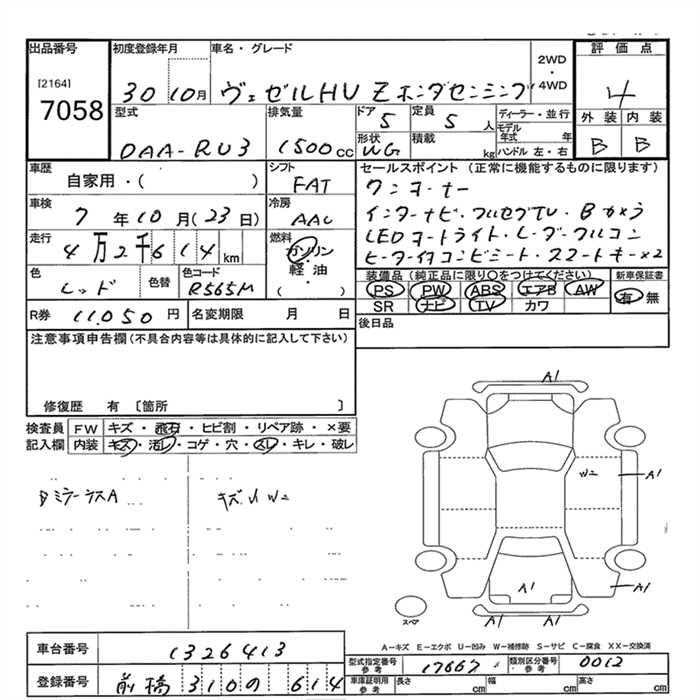 出品番号
[2164]
7058
初度登録年月
30 10月
車名・グレード
ヴェゼルHV Z ホンダセンシング
2WD
・
4WD
評価点
4
外装 内装
B B
型式
DAA-RU3
排気量
1500cc
ドア
5
定員
5 人
形状
WG
積載
kg
ディーラー・並行
モデル年式 年
ハンドル 左・右
車歴
自家用・( )
シフト
FAT
車検
7年10月(23日)
冷房
AAC
走行
4万2千614 km
燃料
ガソリン
軽・油
( )
色
レッド
色替
色コード
R565M
R券 11,050 円
名変期限 月 日
セールスポイント(正常に機能するものに限ります)
ワンオーナー
インターナビ・フルセグTV・Bカメラ
LEDヘッドライト・レーダークルコン
ヒーター付コンビシート・スマートキー×2
装備品(純正品に限り○をつけてください)
新車保証書
PS PW ABS エアB AW
SR ナビ TV カワ
有 無
後日品
注意事項申告欄(不具合内容等は具体的に記入して下さい)
修復歴 有 〔箇所 〕
検査員記入欄
FW キズ・飛石・ヒビ割・リペア跡・×要
内装 キズ・汚レ・コゲ・穴・スレ・キレ・破レ
キズ 小 W2
A1
W2
A1
A1
A1
A1 A1
スペア
A-キズ E-エクボ U-凹み W-補修跡 S-サビ C-腐食 XX-交換済
車台番号
1326413
登録番号
前橋 310 の 614
型式指定番号 参考
17667
類別区分番号 参考
0012
車庫証明用 参考
長さ cm
幅 cm
高さ cm